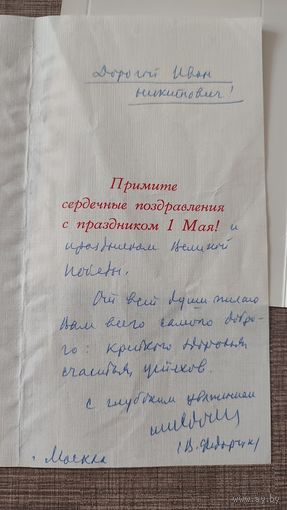 Дорогой Иван
Никитович!
Примите
сердечные поздравления
с праздником 1 Мая! и
праздником Великой
Победы.
От всей души желаю
Вам всего самого добро-
го: крепкого здоровья,
счастья, успехов.
С глубоким уважением
г. Москва
ay.by